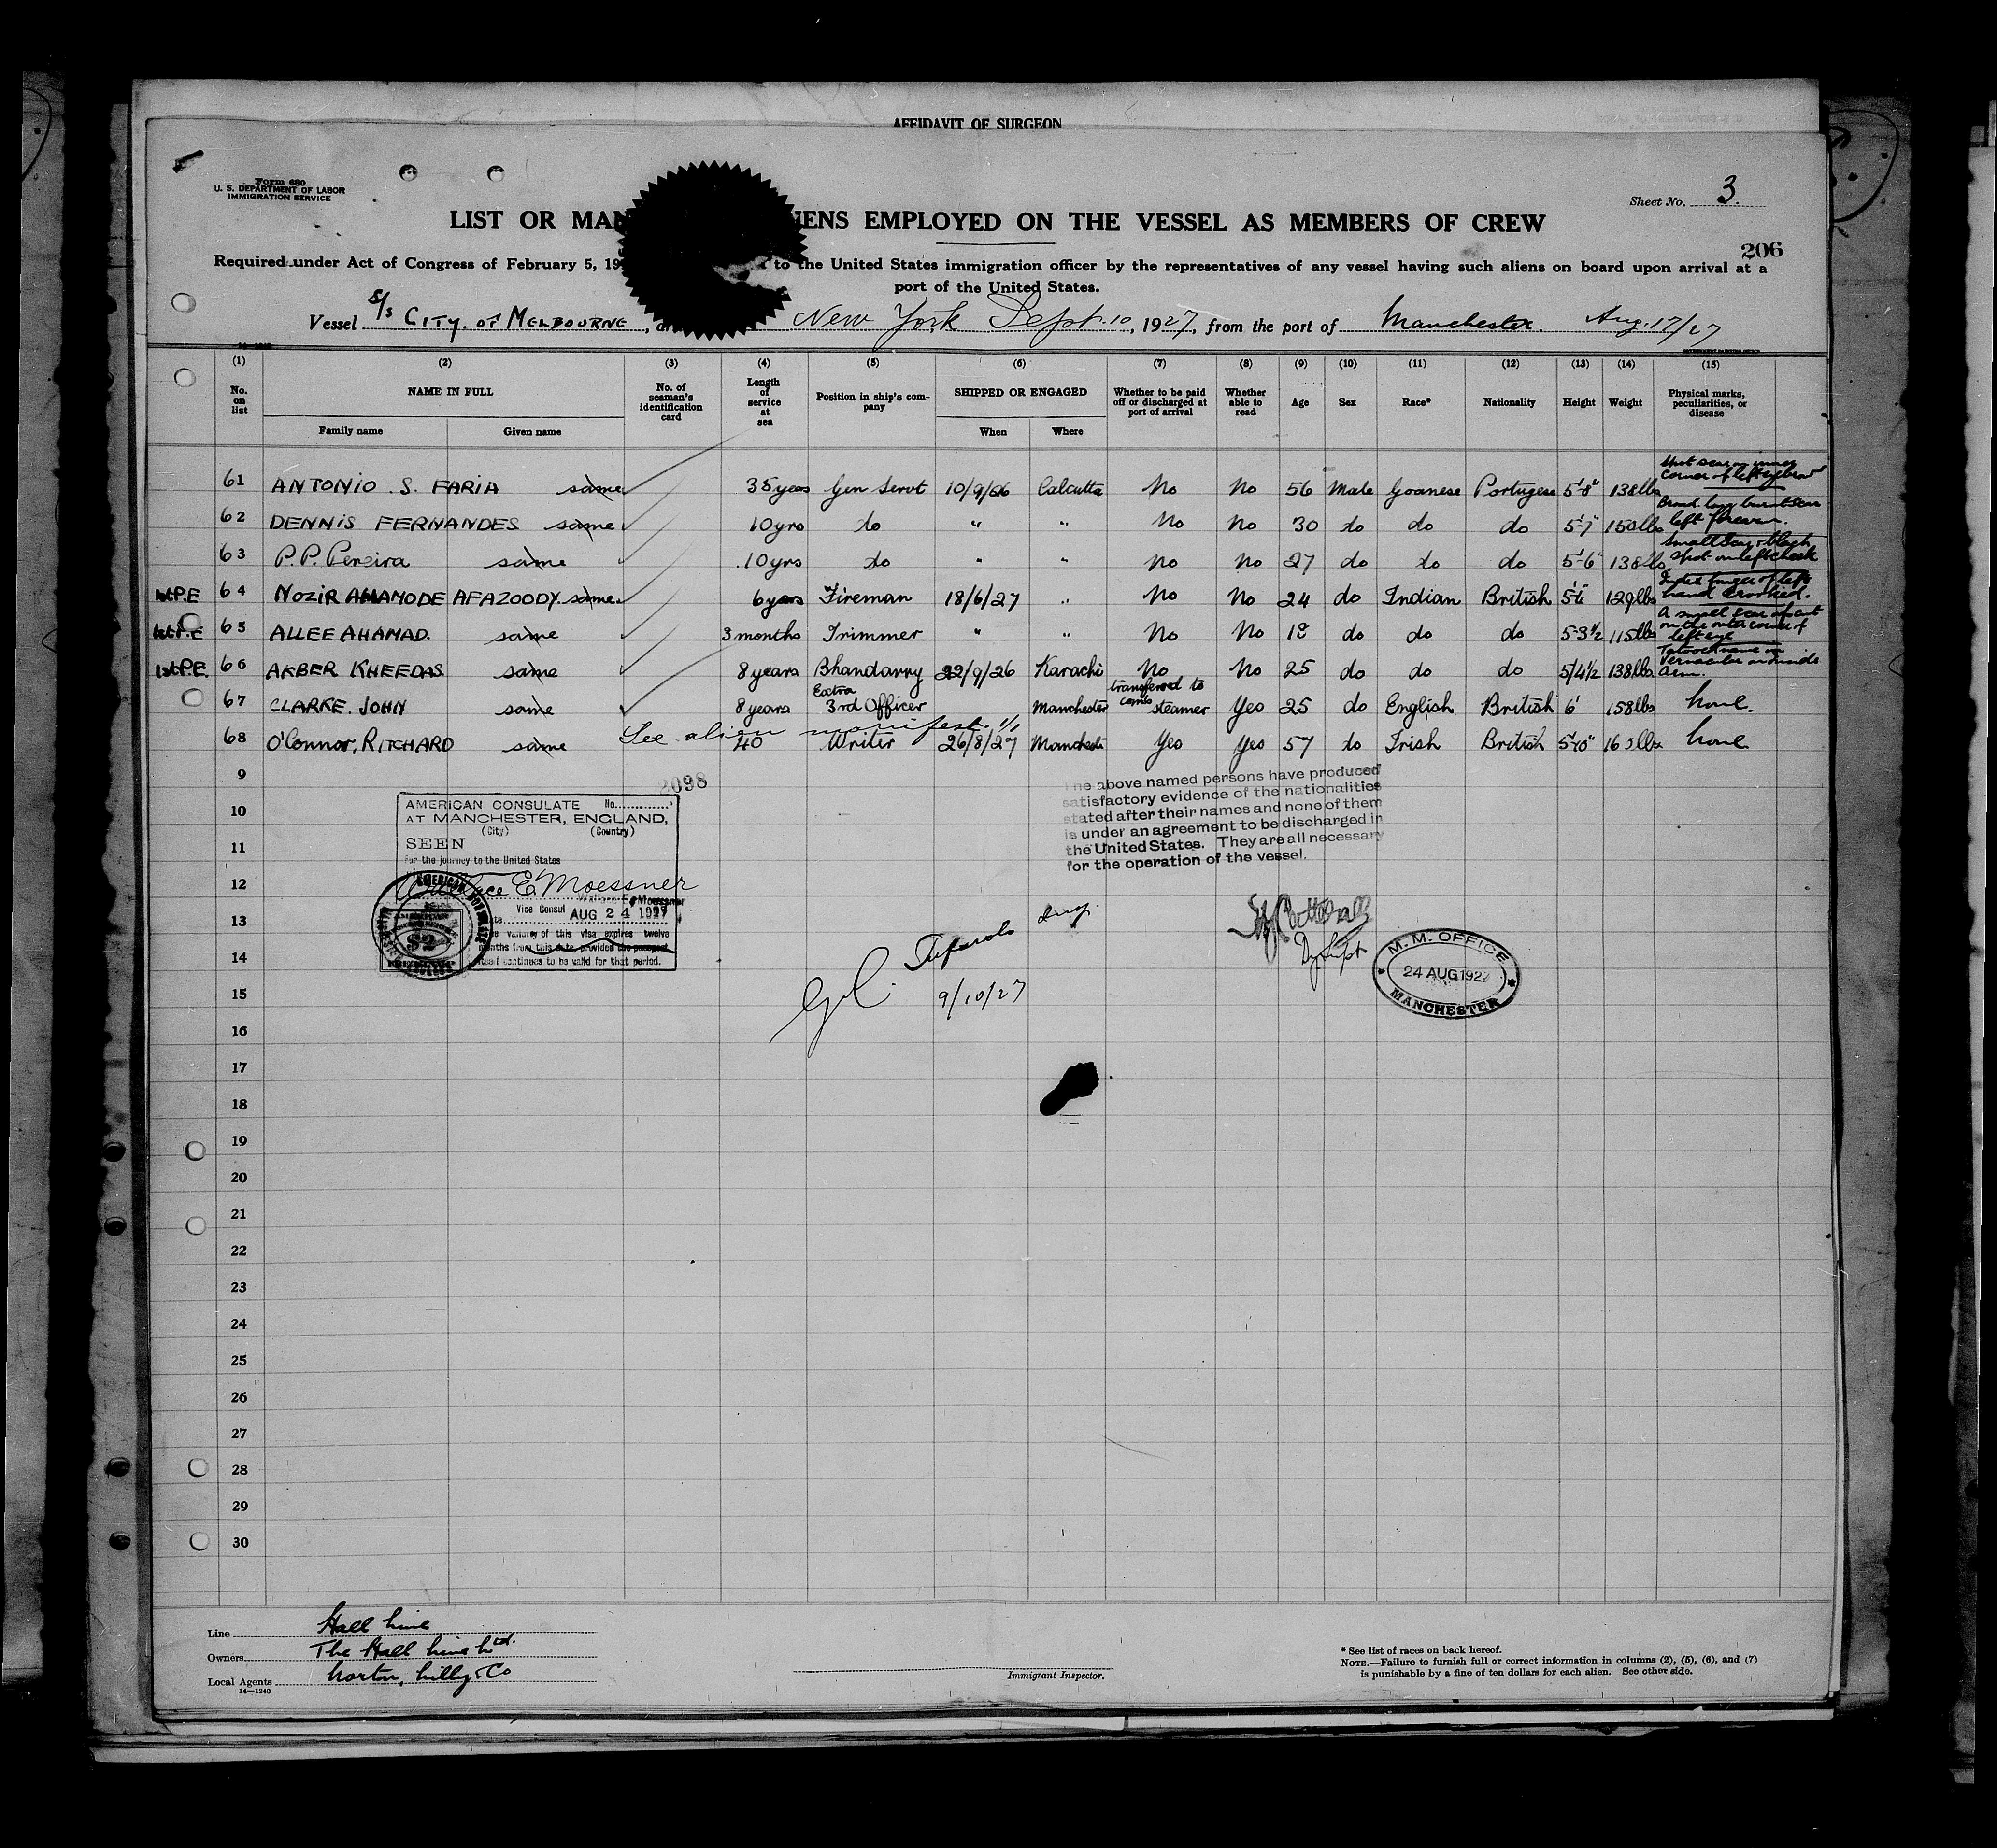 AFFIDAVIT OF SURGEON
Form 680
U. S. DEPARTMENT OF LABOR
IMMIGRATION SERVICE
Sheet No. 3.
LIST OR MAN IENS EMPLOYED ON THE VESSEL AS MEMBERS OF CREW
206
Required under Act of Congress of February 5, 19 to the United States immigration officer by the representatives of any vessel having such aliens on board upon arrival at a
port of the United States.
Vessel S/s CITY. OF MELBOURNE, New York Sept. 10, 1927, from the port of Manchester. Aug. 17/27
(1) (2) (3) (4) (5) (6) (7) (8) (9) (10) (11) (12) (13) (14) (15)
No. on list NAME IN FULL No. of seaman's identification card Length of service at sea Position in ship's company SHIPPED OR ENGAGED Whether to be paid off or discharged at port of arrival Whether able to read Age Sex Race* Nationality Height Weight Physical marks, peculiarities, or disease
Family name Given name When Where
61 ANTONIO . S. FARIA same 35 years Gen Servt 10/9/26 Calcutta No No 56 Male Goanese Portugese 5'8" 138lbs corner of left eyebrow
62 DENNIS FERNANDES same 10yrs do " " No No 30 do do do 5'7" 150lbs Broad long burnt scar left forearm.
63 P. P. Pereira same 10yrs do " " No No 27 do do do 5'6" 138lbs Small scar & black spot on left cheek
1st P.E 64 NOZIR AHAMODE AFAZOODY. same 6 years Fireman 18/6/27 " No No 24 do Indian British 129lbs finger of left hand crooked.
1st P.E 65 ALLEE AHAMAD. same 3 months Trimmer " " No No do do do 5-3½ 115lbs A small scar about on the outer corner of left eye
1st P.E 66 AKBER KHEEDAS same 8 years Bhandarry 22/9/26 Karachi No No 25 do do do 5/4½ 138lbs Tatooed name in vernacular on inside arm.
67 CLARKE. JOHN same 8 years Extra 3rd Officer Manchester transferred to steamer Yes 25 do English British 6' 158lbs None.
See alien manifest. 1/1
68 O'Connor, RITCHARD same 40 Writer 26/8/27 Manchester Yes Yes 57 do Irish British 5'10" None
9
2098
The above named persons have produced
satisfactory evidence of the nationalities
stated after their names and none of them
is under an agreement to be discharged in
the United States. They are all necessary
for the operation of the vessel.
10
AMERICAN CONSULATE No.
AT MANCHESTER, ENGLAND,
(City) (Country)
11
SEEN
For the journey to the United States
12
Wallace E. Moessner
Vice Consul
13
AUG 24 1927
validity of this visa expires twelve
months from this date, provided the passport
14
itself continues to be valid for that period.
15
9/10/27
M. M. OFFICE
24 AUG 1927
MANCHESTER
16
17
18
19
20
21
22
23
24
25
26
27
28
29
30
Line Hall Line
Owners The Hall Line Ltd.
Local Agents Norton, Lilly & Co
14—1240
Immigrant Inspector.
* See list of races on back hereof.
NOTE.—Failure to furnish full or correct information in columns (2), (5), (6), and (7)
is punishable by a fine of ten dollars for each alien. See other side.